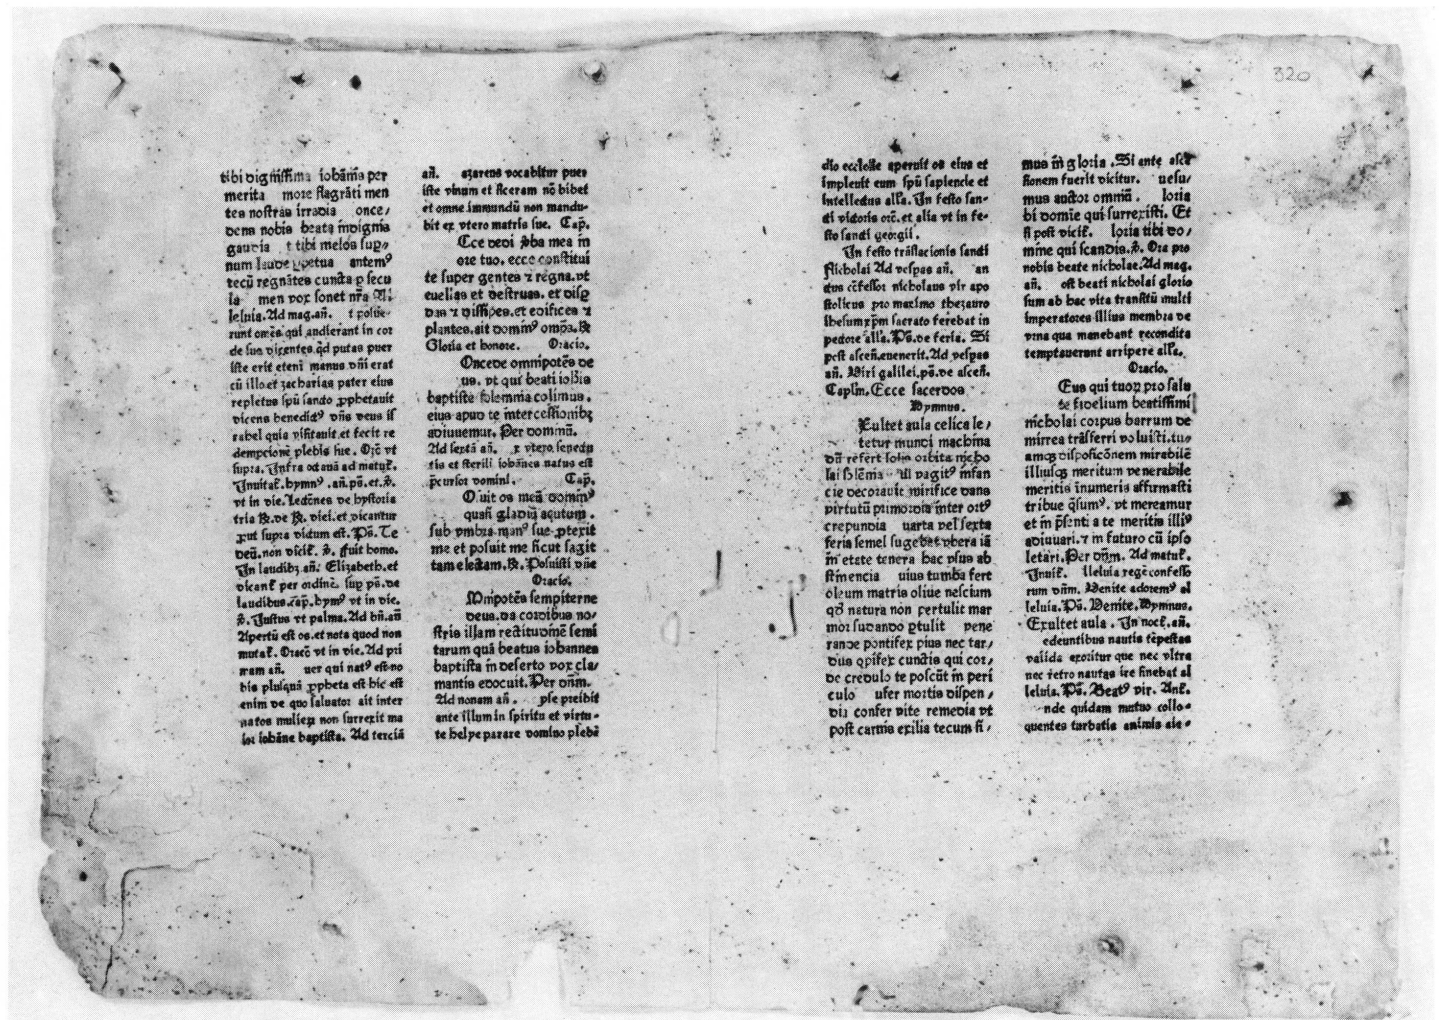 320
tibi dignissima iohāms per
merita more flagrāti men
tes nostras irradia once/
dens nobis beata īndigenis
gaudia t tibi melos sup̱/
num laude ꝑpetua antemꝰ
tecū regnātes cuncta ꝑ secu
la men vox sonet nr̄a Al
leluia. Ad mag. añ. t posue-
runt om̄es qui audierant in cor
de suo dicentes. qd̄ putas puer
iste erit eteni manus dn̄i erat
cū illo. et zacharias pater eius
repletus spū sancto ꝓphetauit
dicens benedictꝰ dn̄s deus is
rahel quia visitauit. et fecit re
dempcionē plebis sue. Orō vt
supra. Infra octauā ad matuƭ.
Inuitaƭ. hymnꝰ . añ. ps̄. et. v̄.
vt in die. Lectōnes de hystoria
tria ℞. de ℞. diei. et dicantur
ꝓut supra dictum est. Ps̄. Te
deū. non diciƭ. v̄. ffuit homo.
In laudibꝫ añ. Elizabeth. et
dicanƭ per ordinē. sup̱ ps̄. de
laudibus. cap̄. hymꝰ vt in die.
v̄. Justus vt palma. Ad bñ. añ
Apertū est os. et nota quod non
mutaƭ. Oracō vt in die. Ad pri
mam añ. uer qui natꝰ est no
bis plusquā ꝓpheta est hic est
enim de quo saluator ait inter
natos mulieꝝ non surrexit ma
ior iohāne baptista. Ad terciā
añ. azareus vocabitur puer
iste vinum et siceram nō bibet
et omne immundū non mandu-
bit ex vtero matris sue. Cap̄.
Cce dedi v̄ba mea in
ore tuo. ecce constitui
te super gentes ⁊ regna. vt
euellas et destruas. et disp̱
das ⁊ dissipes. et edifices ⁊
plantes. ait dominꝰ omp̄s. ℞
Gloria et honore. Oracio.
Oncede omnipotēs de
us. vt qui beati ioh̄is
baptiste solemnia colimus.
eius apud te intercessionibꝫ
adiuuemur. Per dominū.
Ad sextā añ. x vtero senectu
tis et sterili iohānes natus est
p̄cursor domini. Cap̄.
O uit os meū dominꝰ
quasi gladiū acutum.
sub vmbra manꝰ sue ꝓtexit
me et posuit me sicut sagit
tam electam. ℞. Posuisti dn̄e
Oracio.
Mnipotēs sempiterne
deus. da cordibus no/
stris illam rectitudinē semi
tarum quā beatus iohannes
baptista in deserto vox cla/
mantis edocuit. Per dn̄m.
Ad nonam añ. pse preibit
ante illum in spiritu et virtu-
te helye parare domino plebē
dio ecclesie aperuit os eius et
impleuit eum spū sapiencie et
intellectus all'a. In festo san-
cti victoris orō. et alia vt in fe-
sto sancti georgii.
In festo trāslacionis sancti
Nicholai Ad vesp̄as añ. an
ctus cōfessor nicholaus vir apo
stolicus pro maximo thezauro
ihesum xp̄m sacrato ferebat in
pectore all'a. Ps̄. de feria. Si
post ascen̄. euenerit. Ad vesp̄as
añ. Viri galilei. ps̄. de ascen̄.
Caplm̄. Ecce sacerdos
Hymnus.
Exultet aula celica le/
tetur mundi machina
dū refert solis orbita nicho
lai solēnia ui vagitꝰ infan
cie decorauit mirifice dans
virtutū primordia inter ortꝰ
crepundia uarta vel sexta
feria semel sugebat vbera iā
in etate tenera hac vsus ab
stinencia uius tumba fert
oleum matris oliue nescium
qd̄ natura non pertulit mar
mor sudando ꝓtulit vene
rande pontifex pius nec tar/
dus opifex cunctis qui cor/
de credulo te poscūt in peri
culo ufer mortis dispen/
dia confer vite remedia vt
post carnis exilia tecum si/
mus in gloria. Si ante ascē
sionem fuerit dicitur. uesu/
mus auctor omniū. loria
tibi domīe qui surrexisti. Et
si post diciƭ. loria tibi do/
mine qui scandis. v̄. Ora pro
nobis beate nicholae. Ad mag.
añ. ost beati nicholai glorio
sum ab hac vita transitū multi
imperatores illius membra de
vrna qua manebant recondita
temptauerunt arripere all'a.
Oracio.
Eus qui tuoꝝ pro salu
te fidelium beatissimi
nicholai corpus barrum de
mirrea trāsferri voluisti. tu/
amqꝫ disposicōnem mirabilē
illiusqꝫ meritum venerabile
meritis īnumeris affirmasti
tribue q̄sumꝰ. vt mereamur
et in p̄senti a te meritis illiꝰ
adiuuari. ⁊ in futuro cū ipso
letari. Per dn̄m. Ad matuƭ.
Inuiƭ. lleluia regē confesso
rum dn̄m. Venite adoremꝰ al
leluia. Ps̄. Venite. Hymnus.
Exultet aula. In nocƭ. añ.
edeuntibus nautis tēpestas
valida exoritur que nec vltra
nec retro nautas ire sinebat al
leluia. Ps̄. Beatꝰ vir. Anƭ.
nde quidam mutuo collo-
quentes turbatis animis aie-